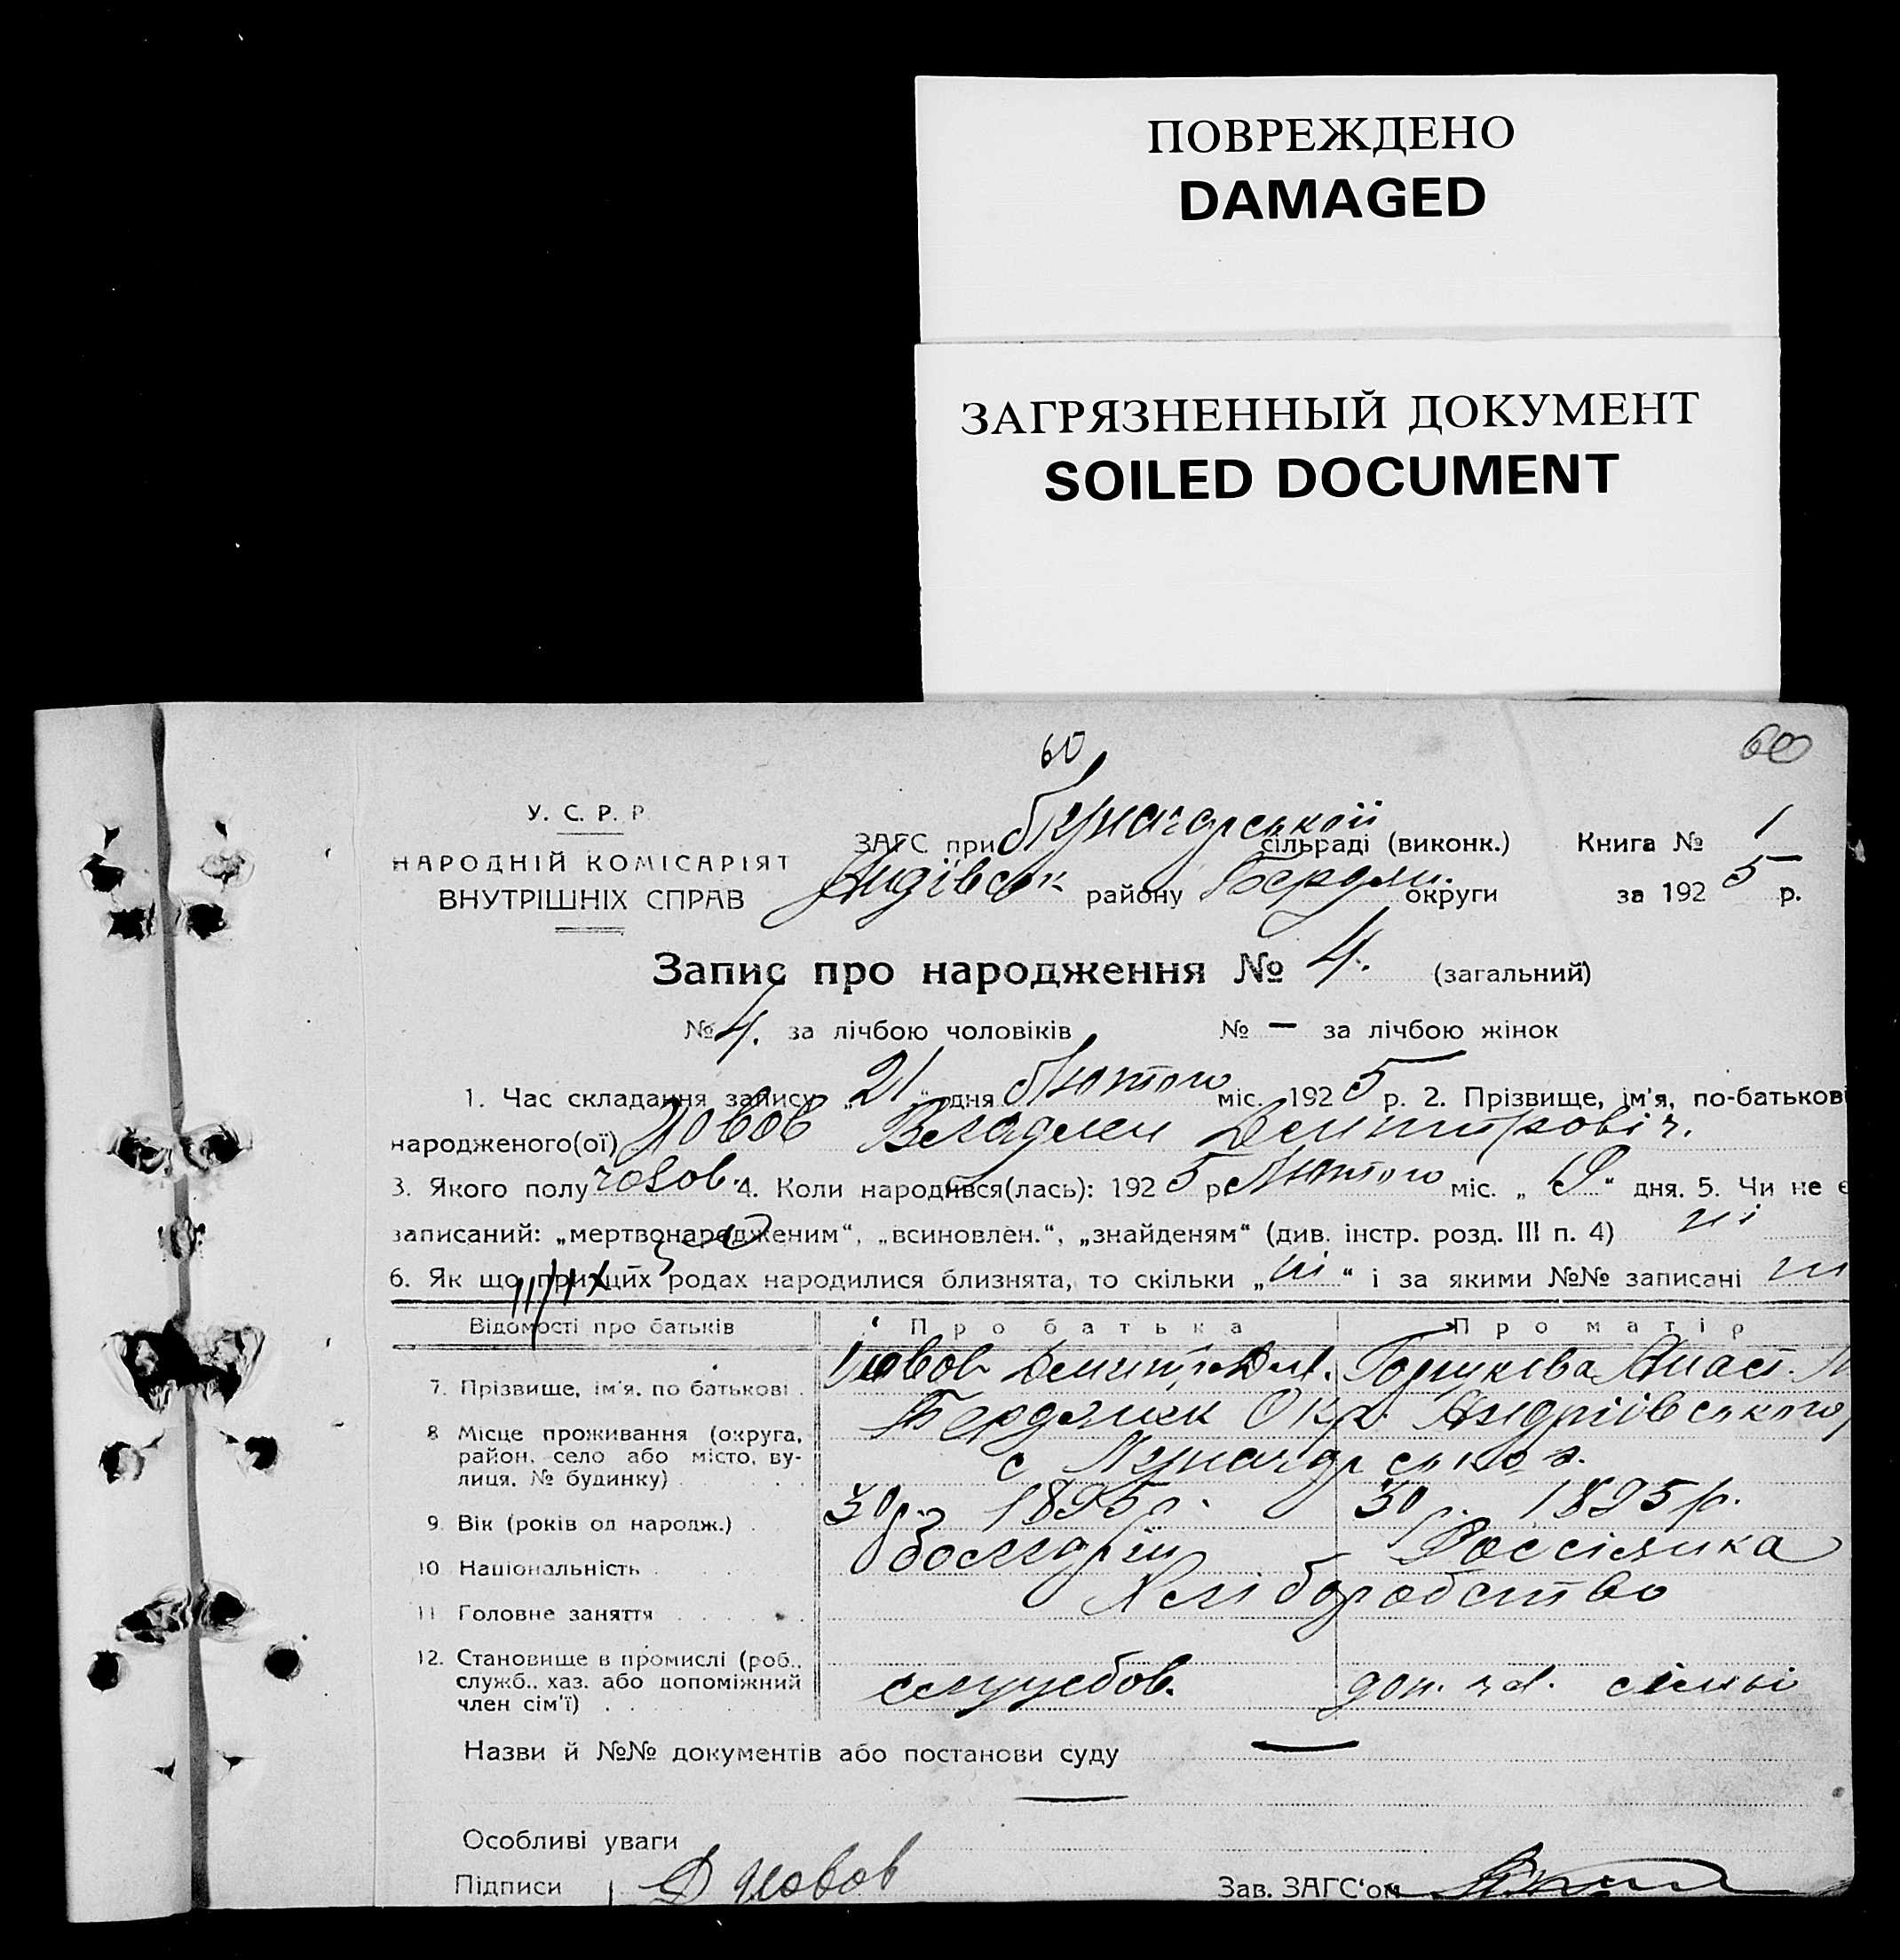 ПОВРЕЖДЕНО
DAMAGED
ЗАГРЯЗНЕННЫЙ ДОКУМЕНТ
SOILED DOCUMENT
60
60
У. С. Р. Р
НАРОДНІЙ КОМІСАРІЯТ
ВНУТРІШНІХ СПРАВ
ЗАГС при сільраді (виконк.) Книга № 1
району Бердян. округи за 1925 р.
Запис про народження № 4. (загальний)
№ 4. за лічбою чоловіків № — за лічбою жінок
1. Час складання запису „21“ дня Лютого міс. 1925 р. 2. Прізвище, ім'я, по-батькові
народженого(ої) Йовов Владлен Демитрович.
3. Якого полу чолов. 4. Коли народився(лась): 1925 р Лютого міс. „ “ дня. 5. Чи не є
записаний: „мертвонародженим“, „всиновлен.“, „знайденям“ (див. інстр. розд. III п. 4) ні
6. Як що при цих родах народилися близнята, то скільки „ні“ і за якими №№ записані ні
Відомості про батьків Про батька Про матір
7. Прізвище, ім'я, по батькові Йовов
8 Місце проживання (округа, район, село або місто, вулиця, № будинку) Бердянск Окр. Андріївського
с
9 Вік (років од народж.) 30 р. 1895 р. 30 р. 1895 р.
10 Національність болгарин Россіянка
11 Головне заняття Хліборобство
12. Становище в промислі (роб., служб., хаз. або допоміжний член сім'ї) службов. доп. чл. сімьі
Назви й №№ документів або постанови суду —
—
Особливі уваги
Підписи Д Йовов Зав. ЗАГС‘ом